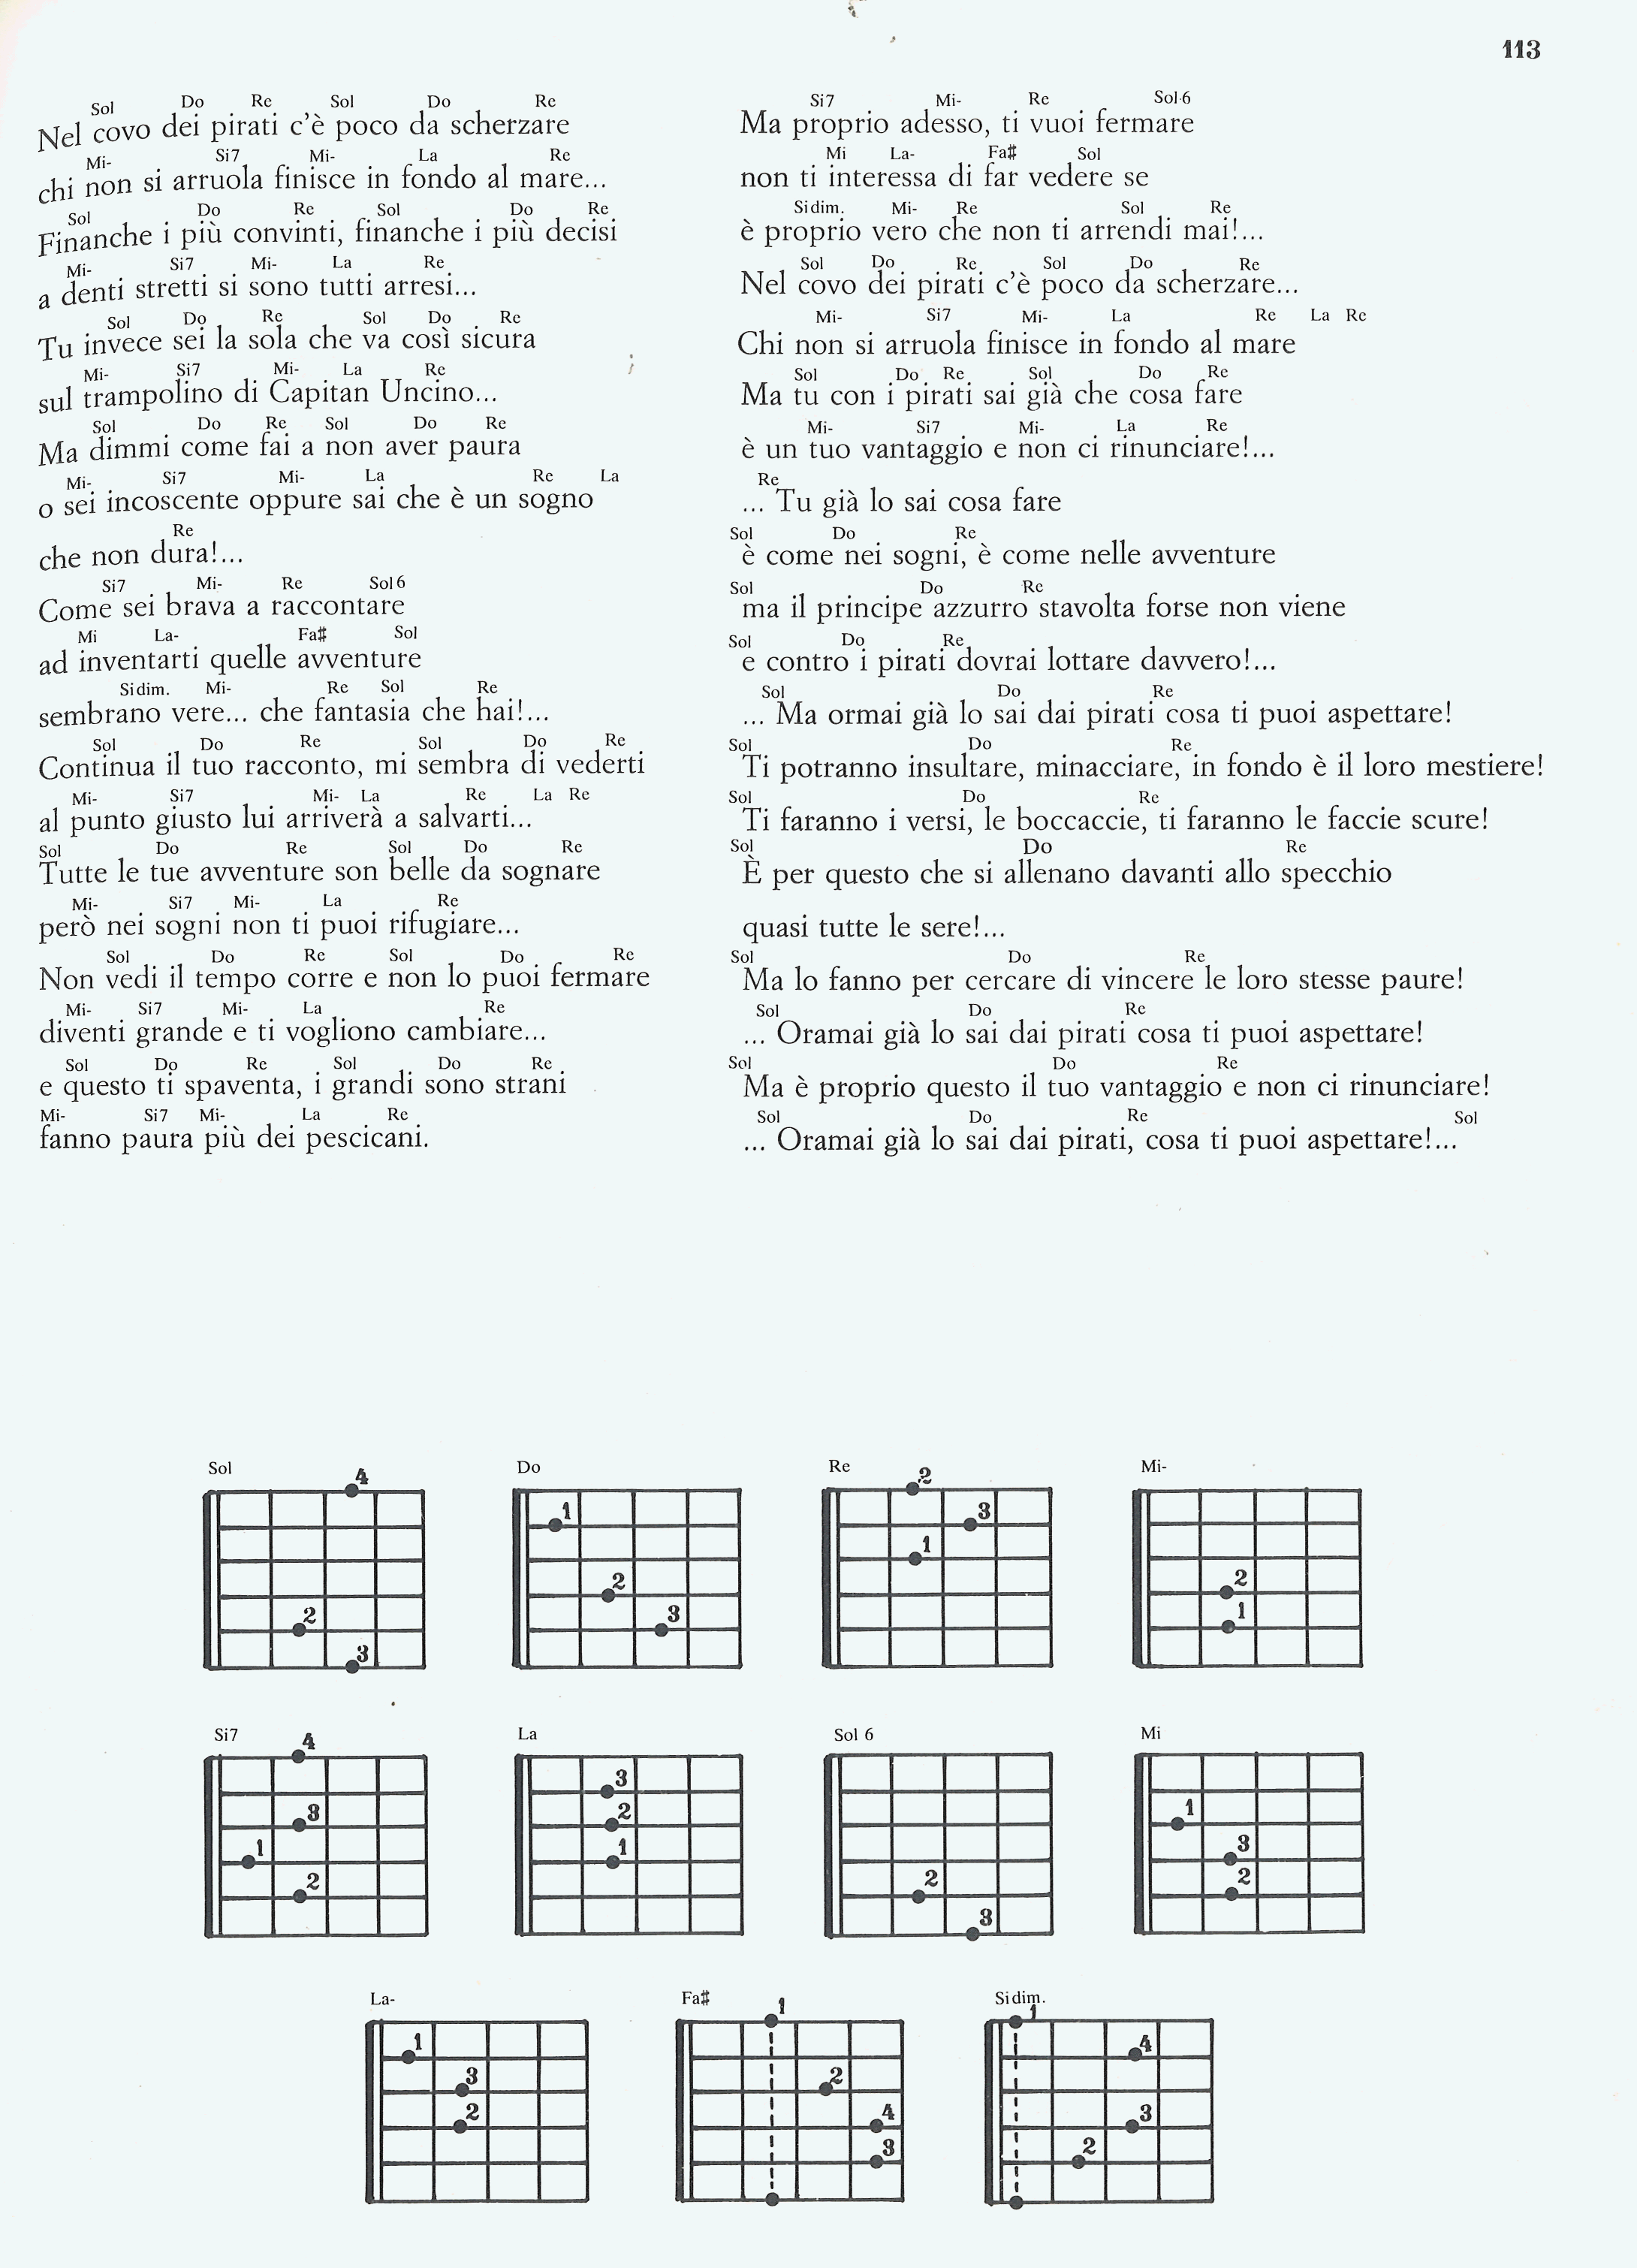 113
Sol Do Re Sol Do Re
Nel covo dei pirati c'è poco da scherzare
Mi- Si7 Mi- La Re
chi non si arruola finisce in fondo al mare...
Sol Do Re Sol Do Re
Finanche i più convinti, finanche i più decisi
Mi- Si7 Mi- La Re
a denti stretti si sono tutti arresi...
Sol Do Re Sol Do Re
Tu invece sei la sola che va così sicura
Mi- Si7 Mi- La Re
sul trampolino di Capitan Uncino...
Sol Do Re Sol Do Re
Ma dimmi come fai a non aver paura
Mi- Si7 Mi- La Re La
o sei incoscente oppure sai che è un sogno
Re
che non dura!...
Si7 Mi- Re Sol6
Come sei brava a raccontare
Mi La- Fa♯ Sol
ad inventarti quelle avventure
Sidim. Mi- Re Sol Re
sembrano vere... che fantasia che hai!...
Sol Do Re Sol Do Re
Continua il tuo racconto, mi sembra di vederti
Mi- Si7 Mi- La Re La Re
al punto giusto lui arriverà a salvarti...
Sol Do Re Sol Do Re
Tutte le tue avventure son belle da sognare
Mi- Si7 Mi- La Re
però nei sogni non ti puoi rifugiare...
Sol Do Re Sol Do Re
Non vedi il tempo corre e non lo puoi fermare
Mi- Si7 Mi- La Re
diventi grande e ti vogliono cambiare...
Sol Do Re Sol Do Re
e questo ti spaventa, i grandi sono strani
Mi- Si7 Mi- La Re
fanno paura più dei pescicani.
Si7 Mi- Re Sol6
Ma proprio adesso, ti vuoi fermare
Mi La- Fa♯ Sol
non ti interessa di far vedere se
Sidim. Mi- Re Sol Re
è proprio vero che non ti arrendi mai!...
Sol Do Re Sol Do Re
Nel covo dei pirati c'è poco da scherzare...
Mi- Si7 Mi- La Re La Re
Chi non si arruola finisce in fondo al mare
Sol Do Re Sol Do Re
Ma tu con i pirati sai già che cosa fare
Mi- Si7 Mi- La Re
è un tuo vantaggio e non ci rinunciare!...
Re
... Tu già lo sai cosa fare
Sol Do Re
è come nei sogni, è come nelle avventure
Sol Do Re
ma il principe azzurro stavolta forse non viene
Sol Do Re
e contro i pirati dovrai lottare davvero!...
Sol Do Re
... Ma ormai già lo sai dai pirati cosa ti puoi aspettare!
Sol Do Re
Ti potranno insultare, minacciare, in fondo è il loro mestiere!
Sol Do Re
Ti faranno i versi, le boccaccie, ti faranno le faccie scure!
Sol Do Re
È per questo che si allenano davanti allo specchio
quasi tutte le sere!...
Sol Do Re
Ma lo fanno per cercare di vincere le loro stesse paure!
Sol Do Re
... Oramai già lo sai dai pirati cosa ti puoi aspettare!
Sol Do Re
Ma è proprio questo il tuo vantaggio e non ci rinunciare!
Sol Do Re Sol
... Oramai già lo sai dai pirati, cosa ti puoi aspettare!...
Sol
4
2
3
Do
1
2
3
Re
2
3
1
Mi-
2
1
Si7
4
3
1
2
La
3
2
1
Sol 6
2
3
Mi
1
3
2
La-
1
3
2
Fa♯
1
2
4
3
Sidim.
1
4
3
2